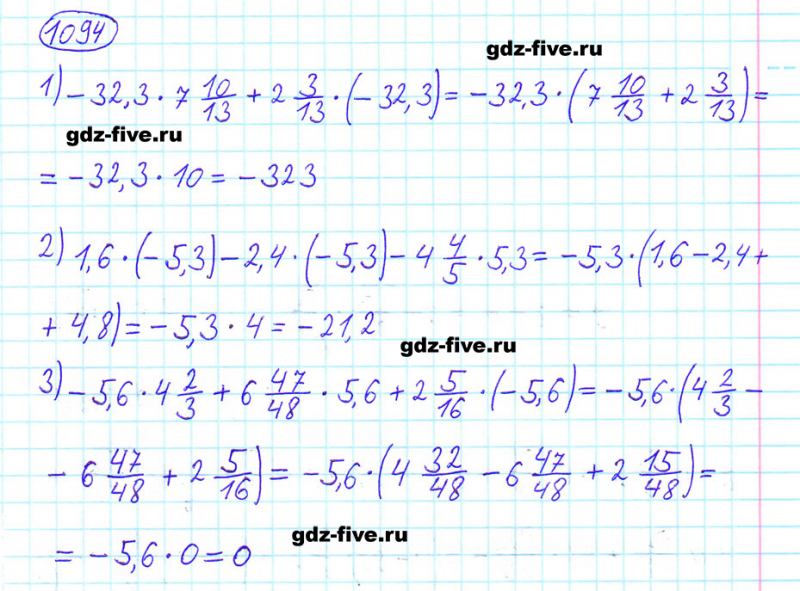 1094
gdz-five.ru
1) - 32,3 · 7 10/13 + 2 3/13 · (- 32,3) = - 32,3 · (7 10/13 + 2 3/13) =
gdz-five.ru
= - 32,3 · 10 = - 323
2) 1,6 · (- 5,3) - 2,4 · (- 5,3) - 4 4/5 · 5,3 = - 5,3 · (1,6 - 2,4 +
+ 4,8) = - 5,3 · 4 = - 21,2
gdz-five.ru
3) - 5,6 · 4 2/3 + 6 47/48 · 5,6 + 2 5/16 · (- 5,6) = - 5,6 · (4 2/3 -
- 6 47/48 + 2 5/16) = - 5,6 · (4 32/48 - 6 47/48 + 2 15/48) =
gdz-five.ru
= - 5,6 · 0 = 0